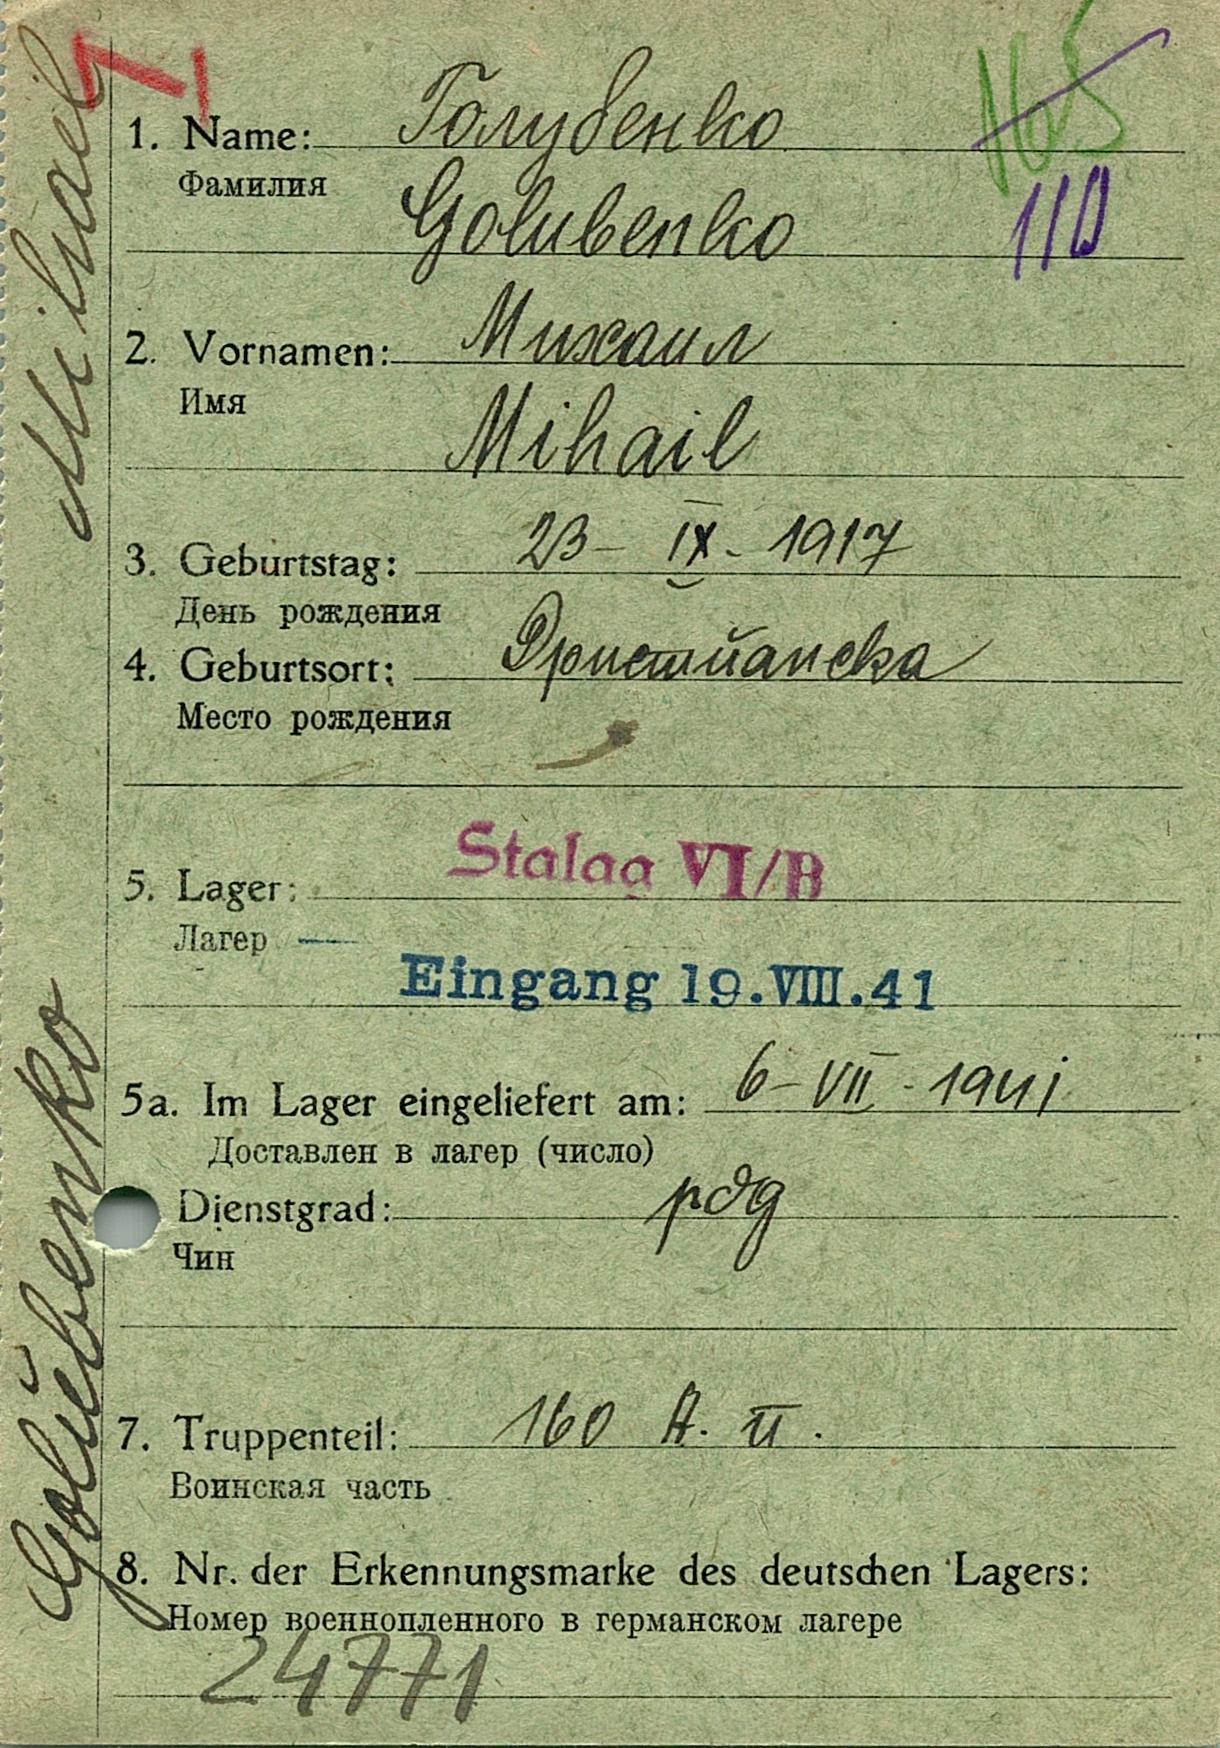 165
1. Name: Голубенко
Фамилия
Golubenko
110
2. Vornamen: Михаил
Имя
Mihail
3. Geburtstag: 23 - IX - 1917
День рождения
4. Geburtsort:
Место рождения
Stalag VI/B
5. Lager:
Лагер
Eingang 19.VIII.41
5a. Im Lager eingeliefert am: 6 - VII - 1941
Доставлен в лагер (число)
Dienstgrad:
Чин
7. Truppenteil: 160 А. п.
Воинская часть
8. Nr. der Erkennungsmarke des deutschen Lagers:
Номер военнопленного в германском лагере
24771
Golúbenko Mihael